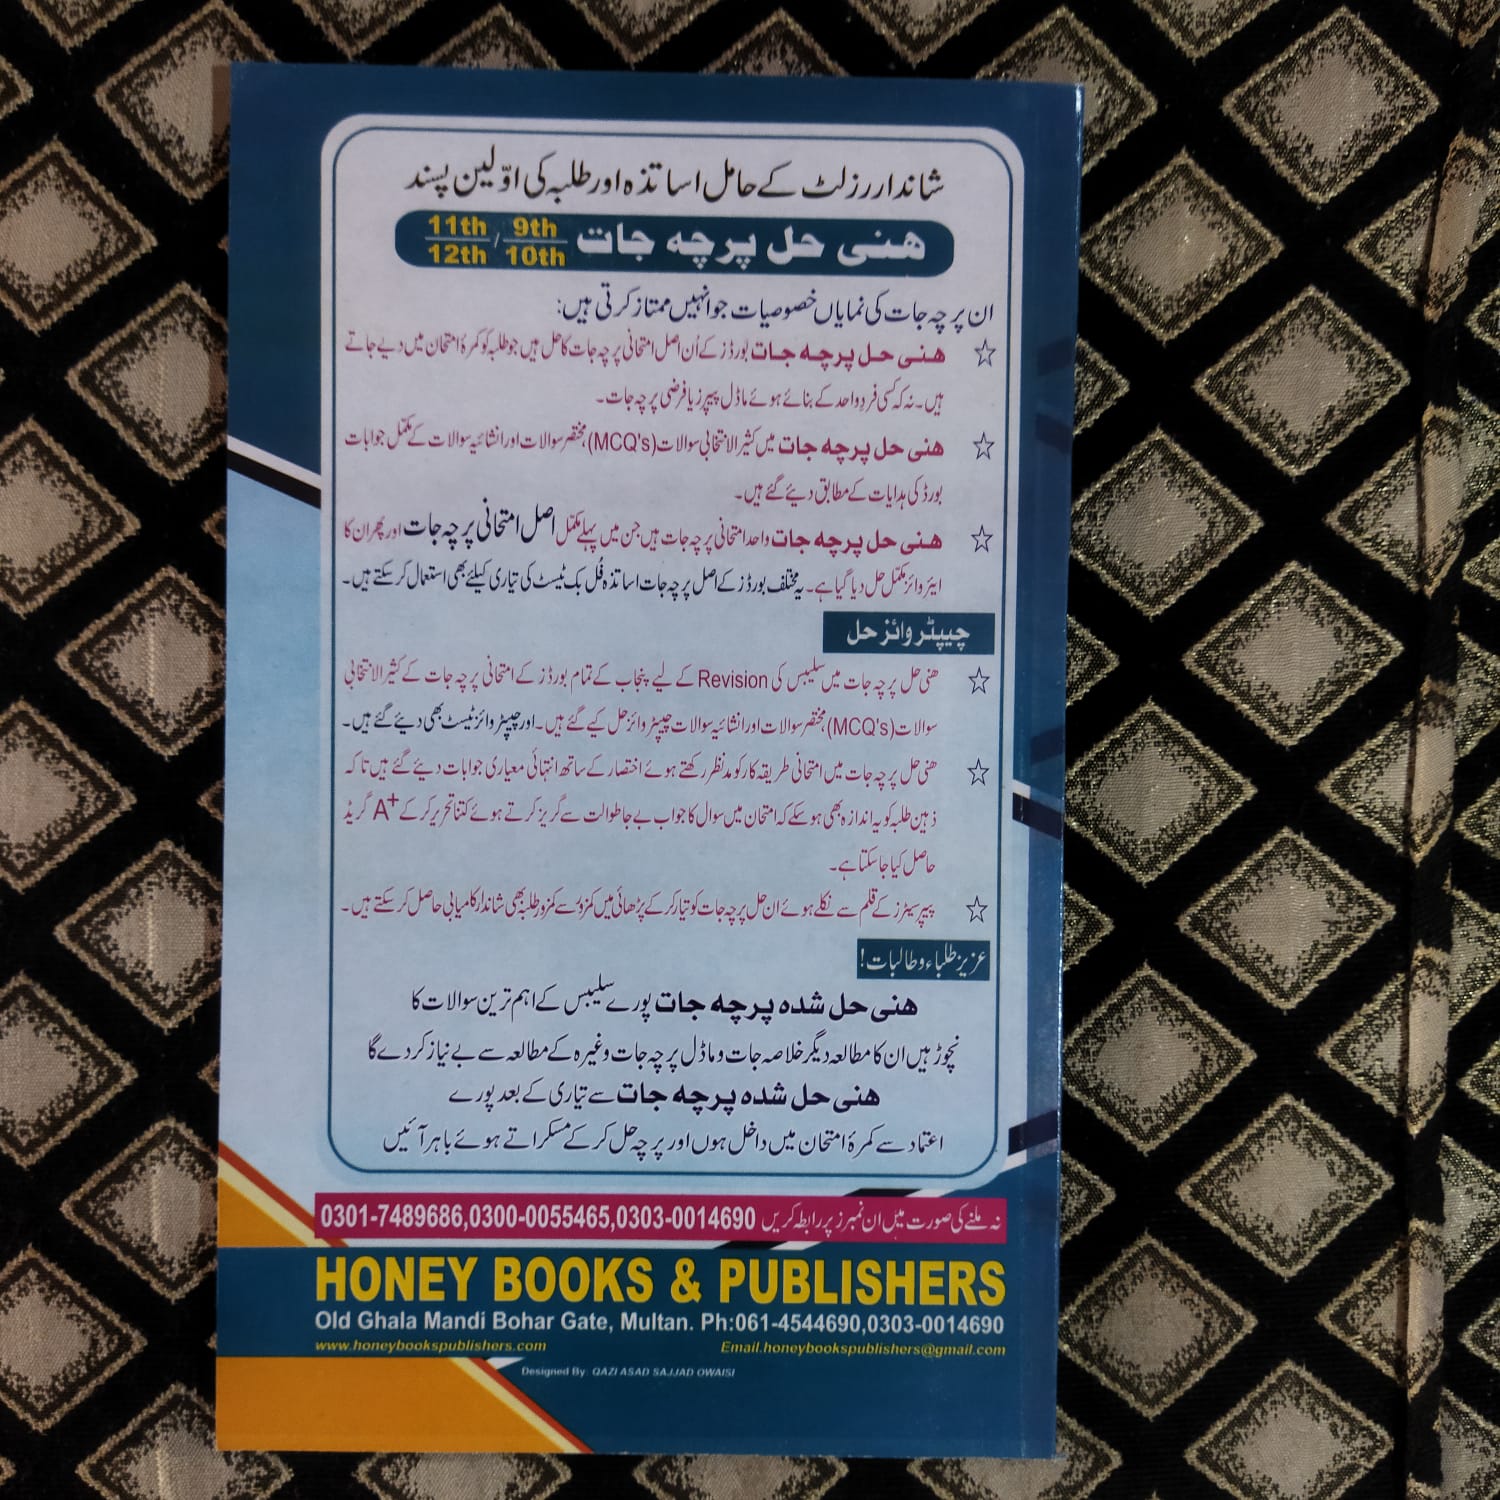 شاندار رزلٹ کے حامل اساتذہ اور طلبہ کی اوّلین پسند
ھنی حل پرچہ جات 9th/10th / 11th/12th
ان پرچہ جات کی نمایاں خصوصیات جو انہیں ممتاز کرتی ہیں:
☆ ھنی حل پرچہ جات بورڈز کے اُن اصل امتحانی پرچہ جات کا حل ہیں جو طلبہ کو کمرۂ امتحان میں دیے جاتے
ہیں۔ نہ کہ کسی فردِ واحد کے بنائے ہوئے ماڈل پیپرز یا فرضی پرچہ جات۔
☆ ھنی حل پرچہ جات میں کثیر الانتخابی سوالات (MCQ's)، مختصر سوالات اور انشائیہ سوالات کے مکمّل جوابات
بورڈ کی ہدایات کے مطابق دیئے گئے ہیں۔
☆ ھنی حل پرچہ جات واحد امتحانی پرچہ جات ہیں جن میں پہلے مکمّل اصل امتحانی پرچہ جات اور پھر ان کا
ایئر وائز مکمّل حل دیا گیا ہے۔ یہ مختلف بورڈز کے اصل پرچہ جات اساتذہ فُل بک ٹیسٹ کی تیاری کیلئے بھی استعمال کر سکتے ہیں۔
چیپٹر وائز حل
☆ ھنی حل پرچہ جات میں سلیبس کی Revision کے لیے پنجاب کے تمام بورڈز کے امتحانی پرچہ جات کے کثیر الانتخابی
سوالات (MCQ's)، مختصر سوالات اور انشائیہ سوالات چیپٹر وائز حل کیے گئے ہیں۔ اور چیپٹر وائز ٹیسٹ بھی دیئے گئے ہیں۔
☆ ھنی حل پرچہ جات میں امتحانی طریقہ کار کو مدنظر رکھتے ہوئے اختصار کے ساتھ انتہائی معیاری جوابات دیئے گئے ہیں تاکہ
ذہین طلبہ کو یہ اندازہ بھی ہو سکے کہ امتحان میں سوال کا جواب بے جا طوالت سے گریز کرتے ہوئے کتنا تحریر کر کے A+ گریڈ
حاصل کیا جا سکتا ہے۔
☆ پیپر سیٹرز کے قلم سے نکلے ہوئے ان حل پرچہ جات کو تیار کر کے پڑھائی میں کمزور سے کمزور طلبہ بھی شاندار کامیابی حاصل کر سکتے ہیں۔
عزیز طلباء و طالبات!
ھنی حل شدہ پرچہ جات پورے سلیبس کے اہم ترین سوالات کا
نچوڑ ہیں ان کا مطالعہ دیگر خلاصہ جات و ماڈل پرچہ جات وغیرہ کے مطالعہ سے بے نیاز کر دے گا
ھنی حل شدہ پرچہ جات سے تیاری کے بعد پورے
اعتماد سے کمرۂ امتحان میں داخل ہوں اور پرچہ حل کر کے مسکراتے ہوئے باہر آئیں
نہ ملنے کی صورت میں ان نمبرز پر رابطہ کریں 0301-7489686,0300-0055465,0303-0014690
HONEY BOOKS & PUBLISHERS
Old Ghala Mandi Bohar Gate, Multan. Ph:061-4544690,0303-0014690
www.honeybookspublishers.com Email.honeybookspublishers@gmail.com
Designed By QAZI ASAD SAJJAD OWAISI